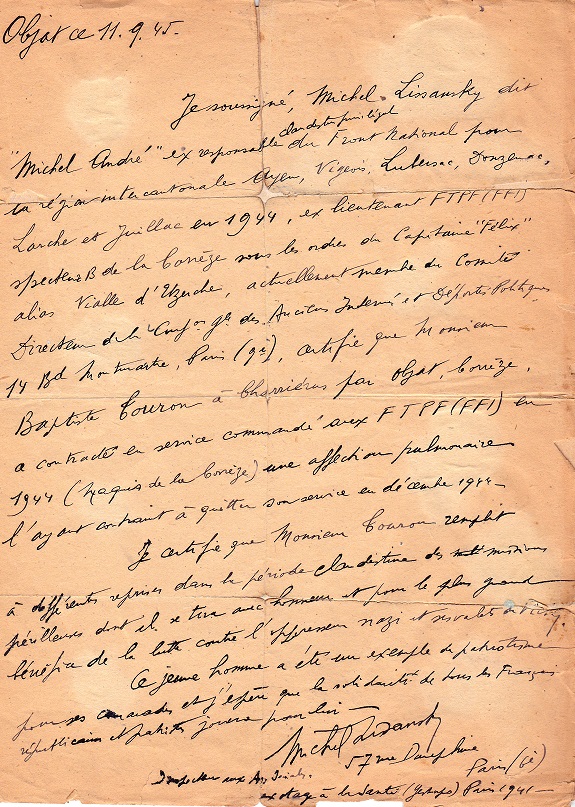 Objat ce 11.9.45.
Je soussigné, Michel Lissansky dit
clandestin
"Michel André" ex responsable du Front National pour
la région intercantonale Ayen, Vigeois, Lubersac, Donzenac,
Larche et Juillac en 1944, ex lieutenant FTPF (FFI)
specteur B de la Corrèze sous les ordres du Capitaine "Félix"
alias Vialle d'Uzerche, actuellement membre du Comité
Directeur de la Conf on gle des Anciens Internés et Déportés Politiques
14 Bd Montmartre, Paris (9è), certifie que Monsieur
Baptiste Couron à Charriéras par Objat, Corrèze,
a contracté en service commandé aux FTPF (FFI) en
1944 (Maquis de la Corrèze) une affection pulmonaire
l'ayant contraint à quitter son service en décembre 1944
Je certifie que Monsieur Couron remplit
à différentes reprises dans la période clandestine des missions
périlleuses dont il se tira avec honneur et pour le plus grand
bénéfice de la lutte contre l'oppresseur nazi et ses valets de Vichy.
Ce jeune homme a été un exemple de patriotisme
pour ses camarades et j'espère que la solidarité de tous les Français
républicains et patriotes jouera pour lui
Michel Lissansky
57 rue Dauphine
Paris (6è)
Inspecteur aux
ex otage à la Santé (Gestapo) Paris 1941